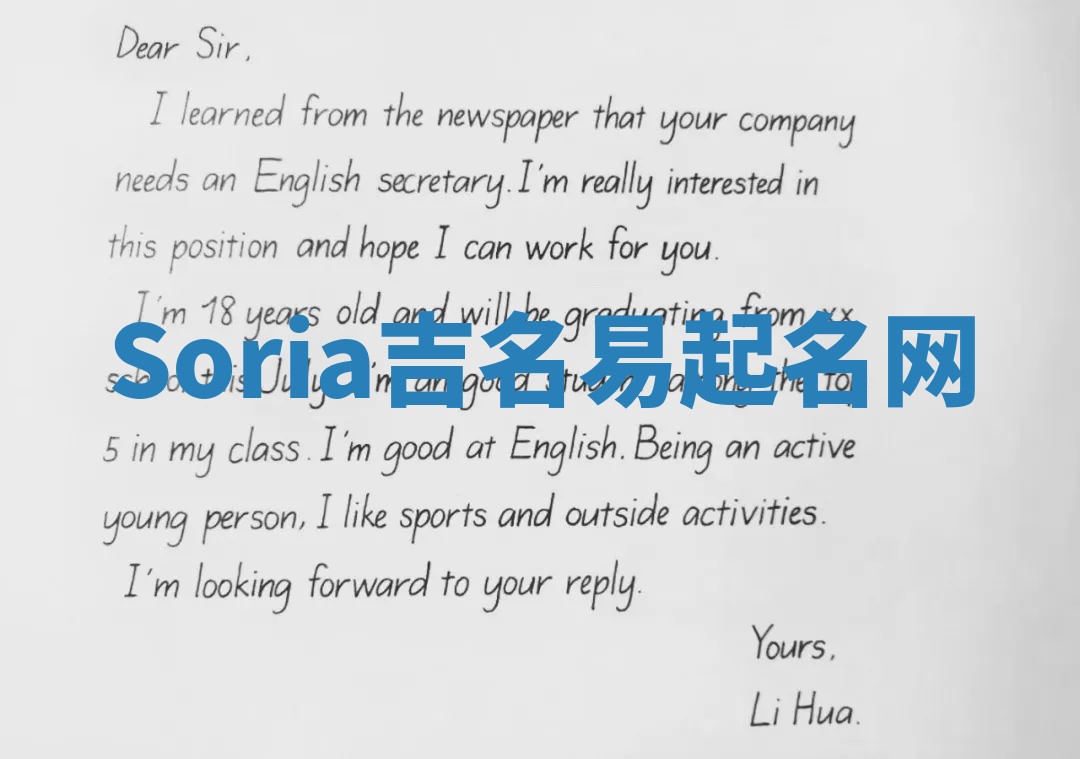 Dear Sir,
I learned from the newspaper that your company
needs an English secretary. I'm really interested in
this position and hope I can work for you.
I'm 18 years old and will be graduating from xx
Soria吉名易起名网
school this July. I'm an good student among the top
5 in my class. I'm good at English. Being an active
young person, I like sports and outside activities.
I'm looking forward to your reply.
Yours,
Li Hua.